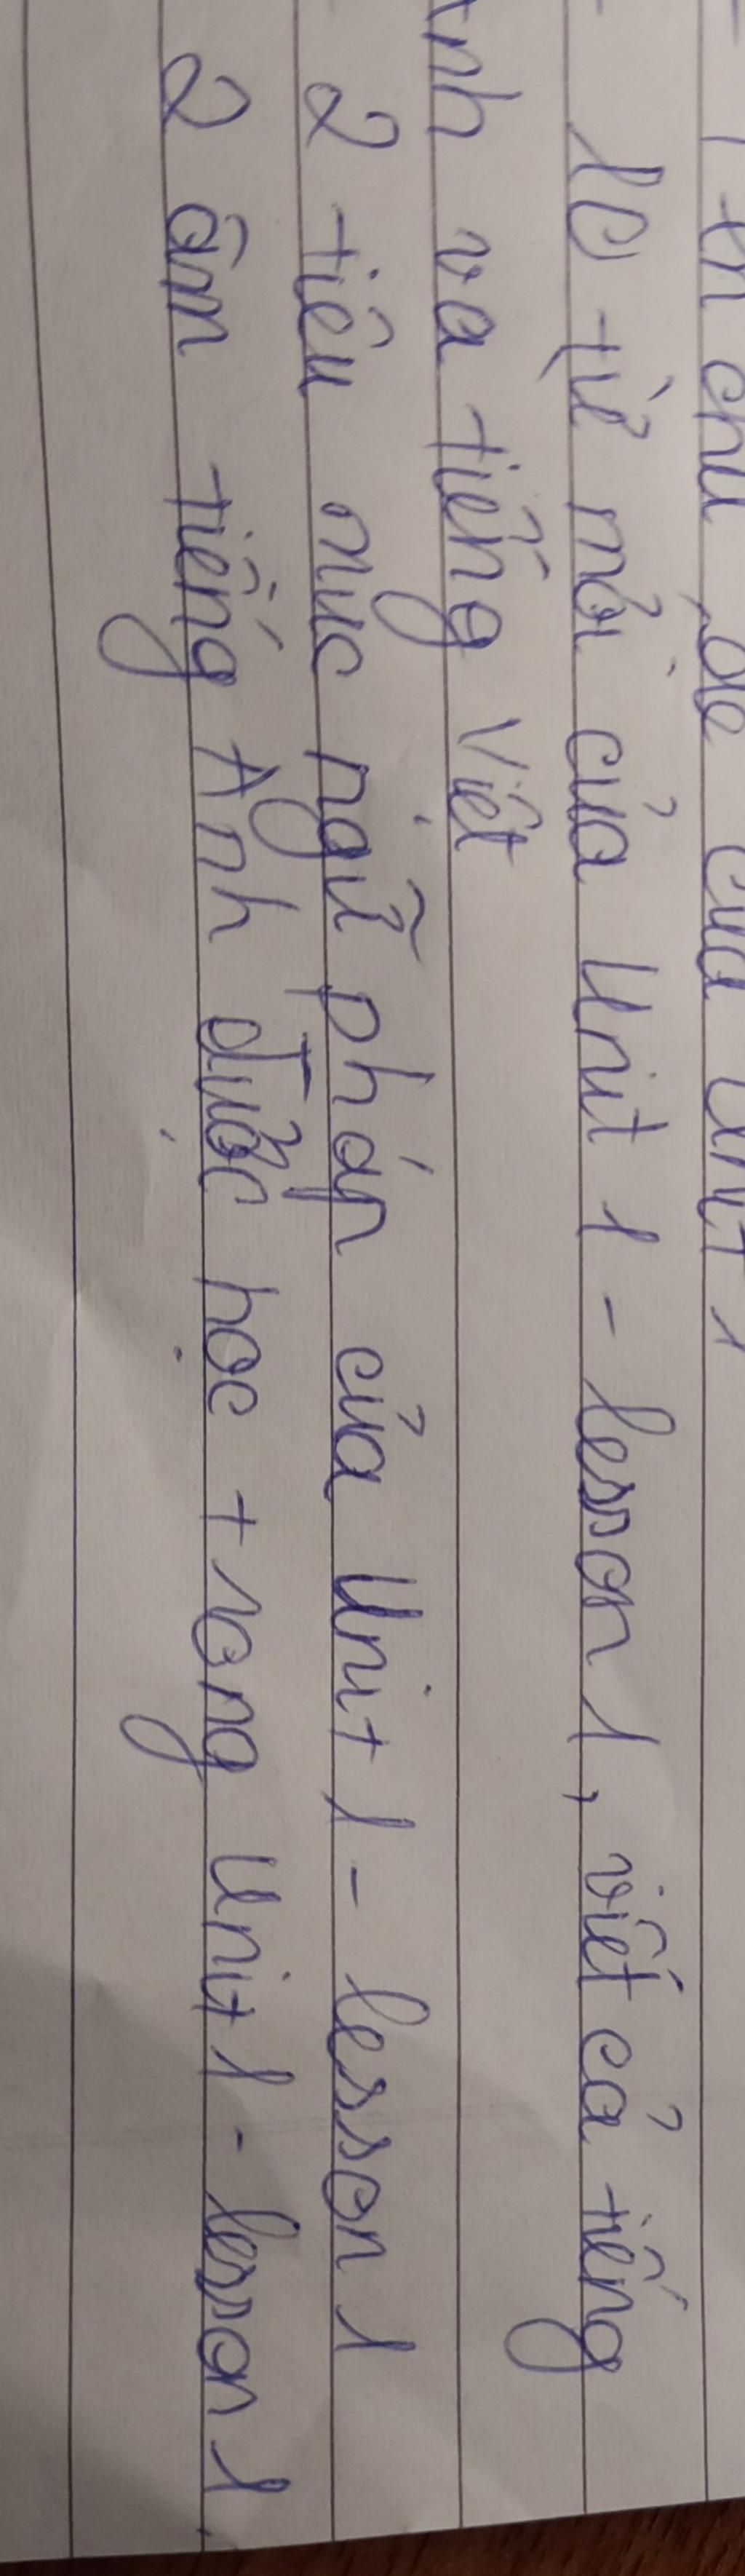 - Tên chủ đề của Unit 1
- 10 từ mới của Unit 1 - lesson 1, viết cả tiếng
Anh và tiếng Việt
2 tiêu mục ngữ pháp của Unit 1 - lesson 1
2 âm tiếng Anh được học trong Unit 1 - lesson 1.